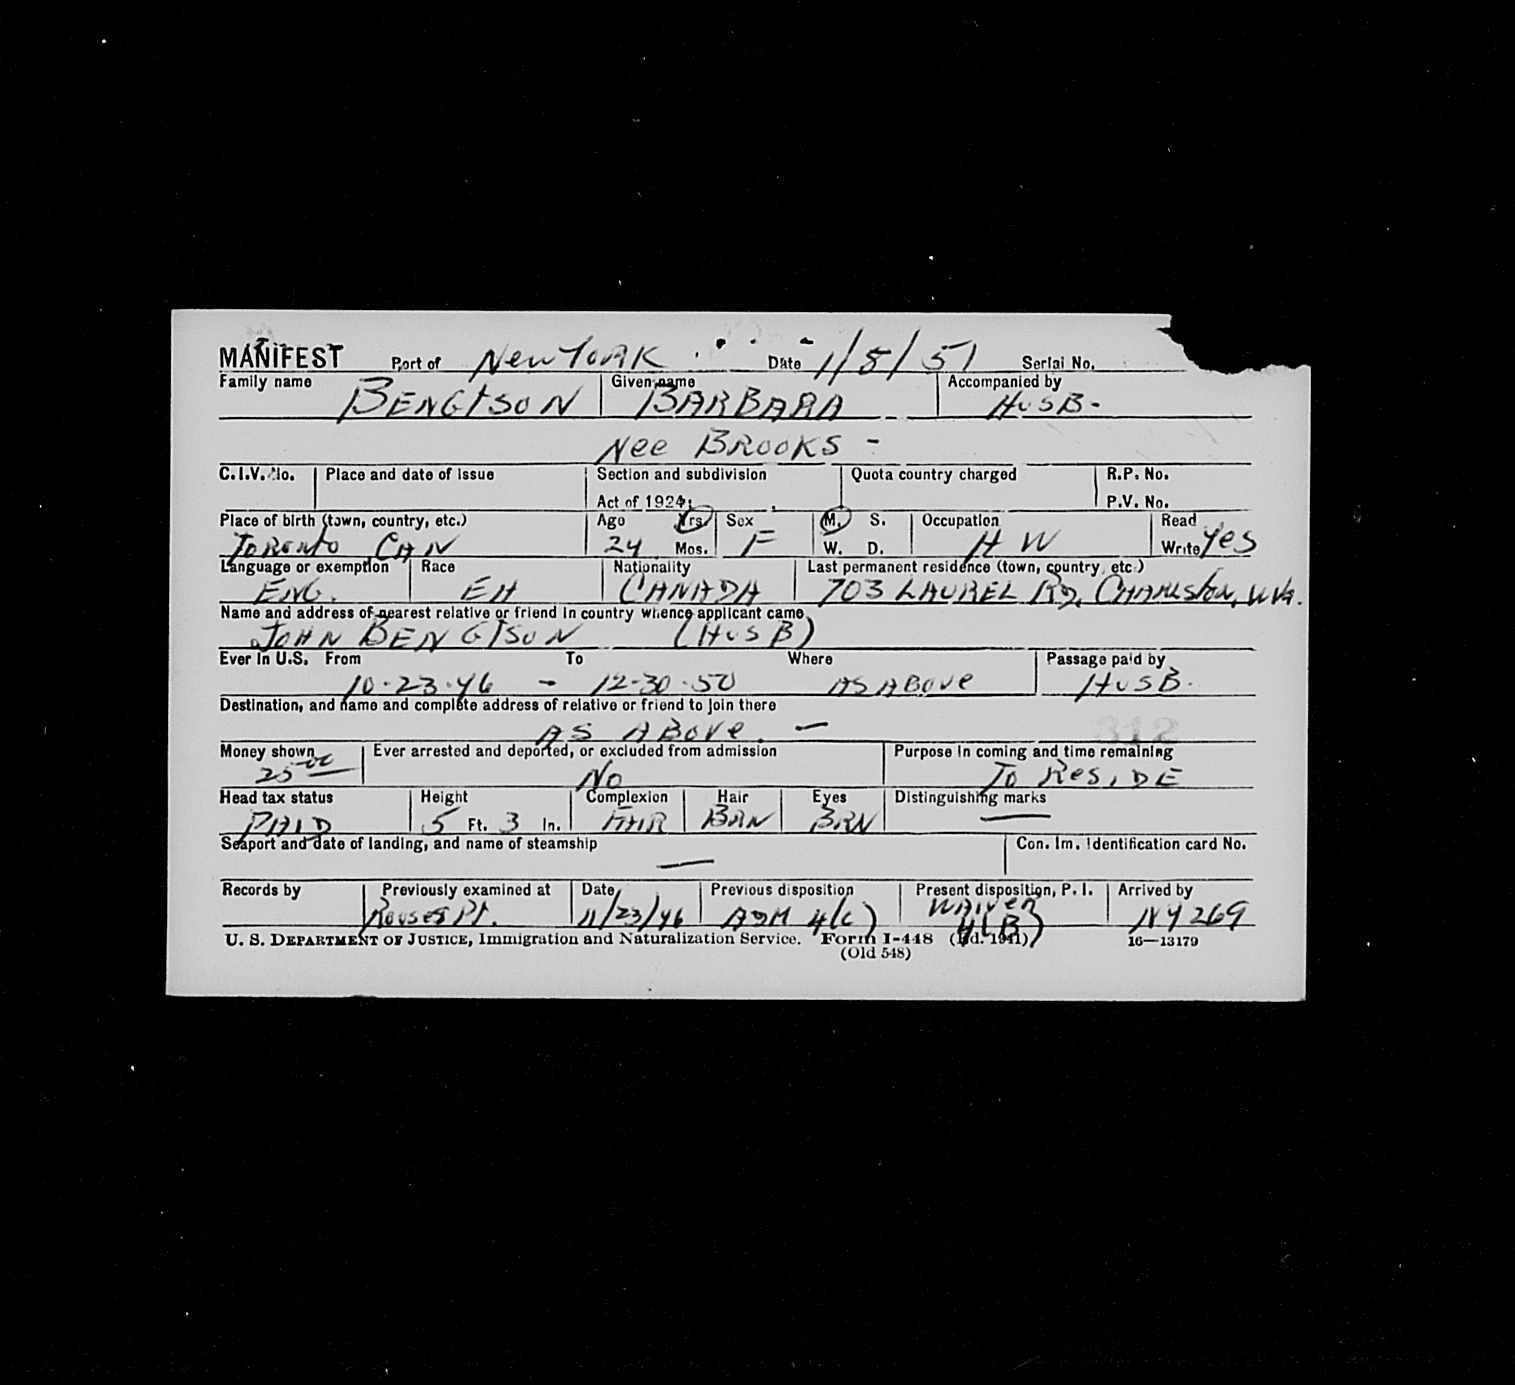 MANIFEST Port of New York Date 1/5/51 Serial No.
Family name Given name Accompanied by
BENGTSON BARBARA HUSB-
Nee BROOKS -
C.I.V. No. Place and date of issue Section and subdivision Quota country charged R.P. No.
Act of 1924; P.V. No.
Place of birth (town, country, etc.) Age Yrs. Sex M. S. Occupation Read
TORONTO CAN 24 Mos. F W. D. H W Write Yes
Language or exemption Race Nationality Last permanent residence (town, country, etc.)
ENG. EH CANADA 703 LAUREL RD, CHARLSTON, W.VA.
Name and address of nearest relative or friend in country whence applicant came
JOHN BENGTSON (HUSB)
Ever in U.S. From To Where Passage paid by
10-23-46 - 12-30-50 AS ABOVE HUSB.
Destination, and name and complete address of relative or friend to join there
AS ABOVE. -
312
Money shown Ever arrested and deported, or excluded from admission Purpose in coming and time remaining
25.00 No To RESIDE
Head tax status Height Complexion Hair Eyes Distinguishing marks
PAID 5 Ft. 3 In. FAIR BRN BRN —
Seaport and date of landing, and name of steamship Con. Im. Identification card No.
—
Records by Previously examined at Date Previous disposition Present disposition, P. I. Arrived by
Rouses Pt. 11/23/46 ADM 4(c) WAIVER NY 269
4(B)
U. S. DEPARTMENT OF JUSTICE, Immigration and Naturalization Service. Form I-448 (Ed. 1941) 16—13179
(Old 548)